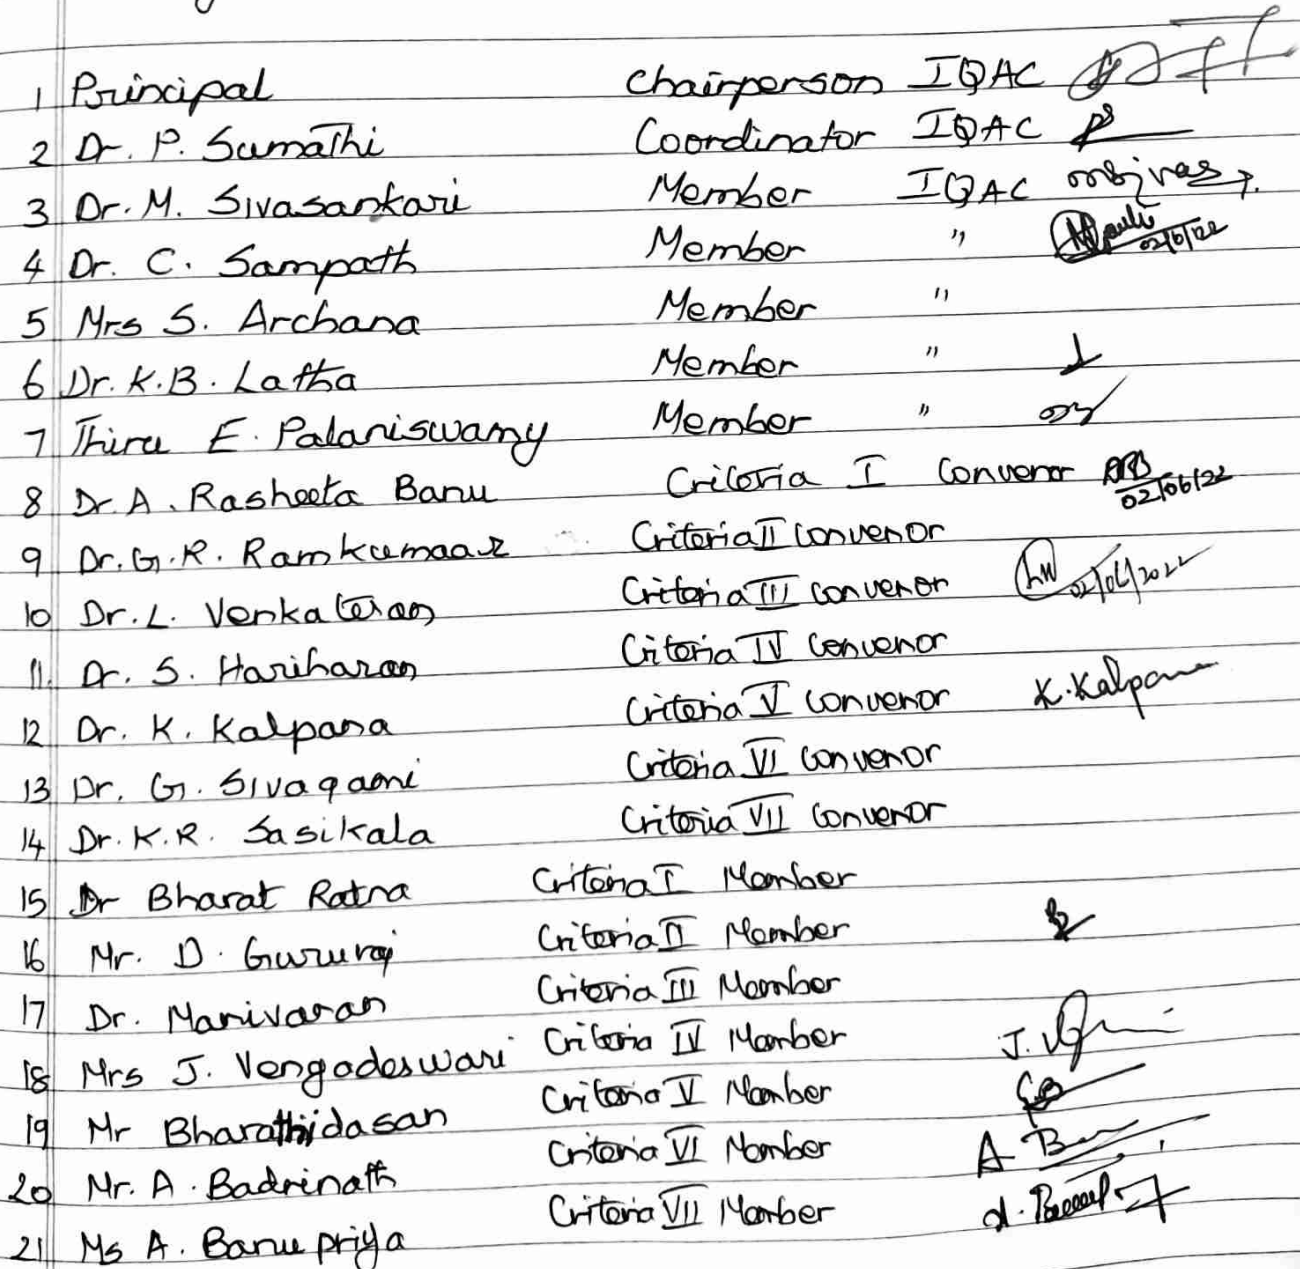 1 Principal Chairperson IQAC
2 Dr. P. Sumathi Coordinator IQAC
3 Dr. M. Sivasankari Member IQAC
4 Dr. C. Sampath Member " 02/6/22
5 Mrs S. Archana Member "
6 Dr. K.B. Latha Member "
7 Thiru E. Palaniswamy Member "
8 Dr. A. Rasheeta Banu Criteria I Convenor 02/06/22
9 Dr. G.R. Ramkumaar Criteria II Convenor
10 Dr. L. Venkatesan Criteria III Convenor 02/06/2022
11. Dr. S. Hariharan Criteria IV Convenor
12 Dr. K. Kalpana Criteria V Convenor K. Kalpana
13 Dr. G. Sivagami Criteria VI Convenor
14 Dr. K.R. Sasikala Criteria VII Convenor
15 Dr Bharat Ratna Criteria I Member
16 Mr. D. Gururaj Criteria II Member
17 Dr. Manivanan Criteria III Member
18 Mrs J. Vengadeswari Criteria IV Member
19 Mr Bharathidasan Criteria V Member
20 Mr. A. Badrinath Criteria VI Member
21 Ms A. Banupriya Criteria VII Member